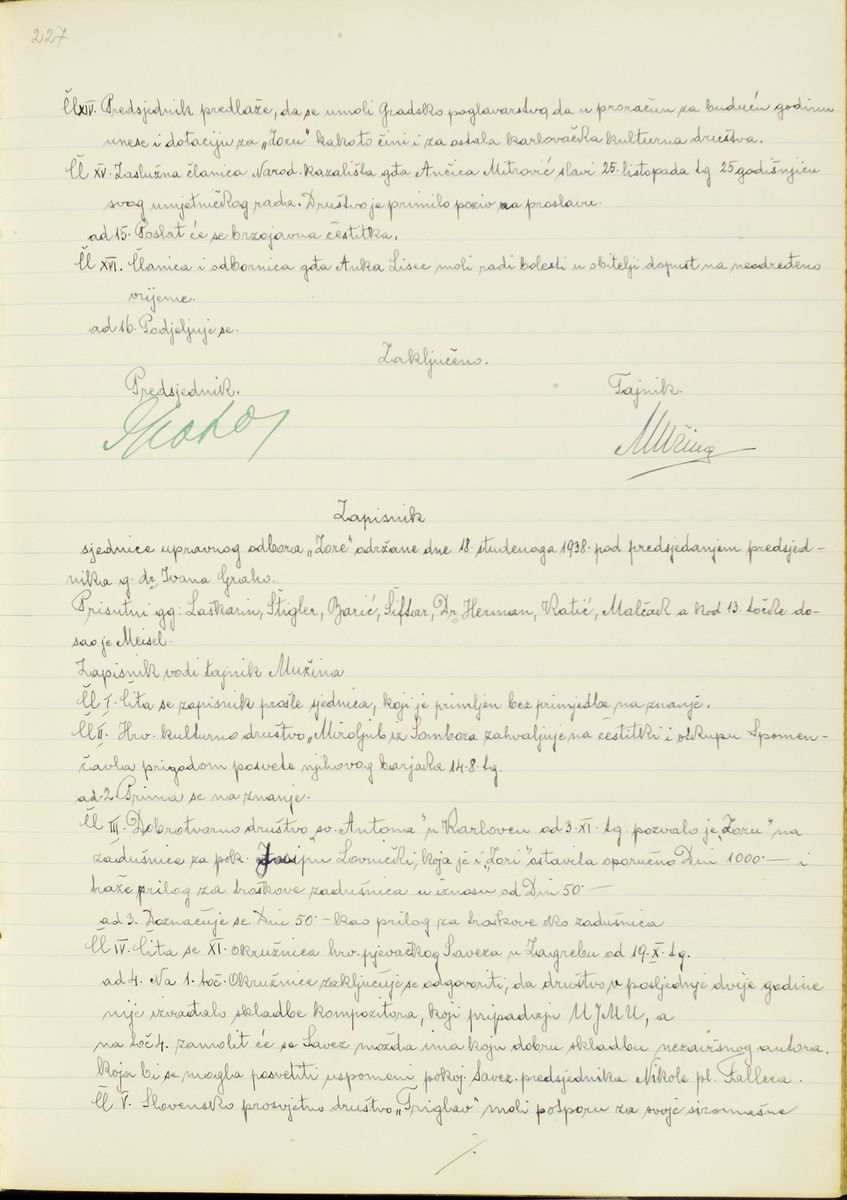 227
Čl XIV. Predsjednik predlaže, da se umoli Gradsko poglavarstvo, da u proračun za buduću godinu
unese i dotaciju za „Zoru" kako to čini i za ostala karlovačka kulturna društva.
Čl XV. Zaslužna članica Narod. kazališta gđa Ančica Mitrović slavi 25. listopada tg 25 godišnjicu
svog umjetničkog rada. Društvo je primilo poziv na proslavu.
ad 15. Poslat će se brzojavna čestitka.
Čl XVI. Članica i odbornica gđa Anka Lisec moli radi bolesti u obitelji dopust na neodređeno
vrijeme.
ad 16. Podjeljuje se.
Zaključeno.
Predsjednik. Tajnik.
Mužina
Zapisnik
sjednice upravnog odbora „Zore" održane dne 18. studenoga 1938. pod predsjedanjem predsjed-
nika g. dr. Ivana Graho.
Prisutni gg: Laškarin, Štigler, Barić, Šiftar, Dr. Herman, Katić, Malčak a kod 13. točke do-
šao je Meisel.
Zapisnik vodi tajnik Mužina
Čl I. Čita se zapisnik prošle sjednice, koji je primljen bez primjedbe na znanje.
Čl II. Hrv. kulturno društvo „Miroljub iz Sombora zahvaljuje na čestitki i otkupu Spomen-
čavla prigodom posvete njihovog barjaka 14.8. tg.
ad 2. Prima se na znanje.
Čl III. Dobrotvorno društvo „sv. Antoma" u Karlovcu od 3. XI. tg. pozvalo je „Zoru" na
zadušnice za pok. Josipu Lovnički, koja je i „Zori" ostavila oporučno Din 1000.— i
traže prilog za troškove zadušnica u iznosu od Din 50.—
ad 3. Doznačuje se Din 50.— kao prilog za troškove oko zadušnica
Čl IV. Čita se XI. okružnica hrv. pjevačkog Saveza u Zagrebu od 19. X. tg.
ad 4. Na 1. toč. Okružnice zaključuje se odgovoriti, da društvo v posljednje dvije godine
nije izvađalo skladbe kompozitora, koji pripadaju UJMU, a
na toč 4. zamolit će se Savez možda ima koju dobru skladbu nezavisnog autora,
koja bi se mogla posvetiti uspomeni pokoj. Savez. predsjednika Nikole pl. Fallera.
Čl V. Slovensko prosvjetno društvo „Triglav" moli potporu za svoje siromašne
./.